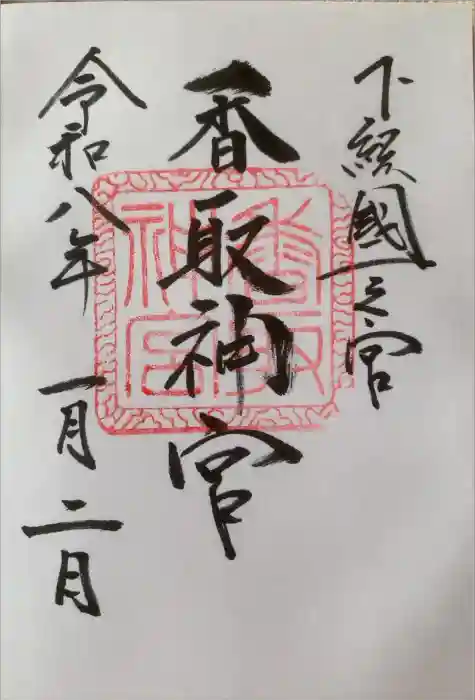 下総國一之宮
香取神宮
令和八年 一月二月
香取
神宮